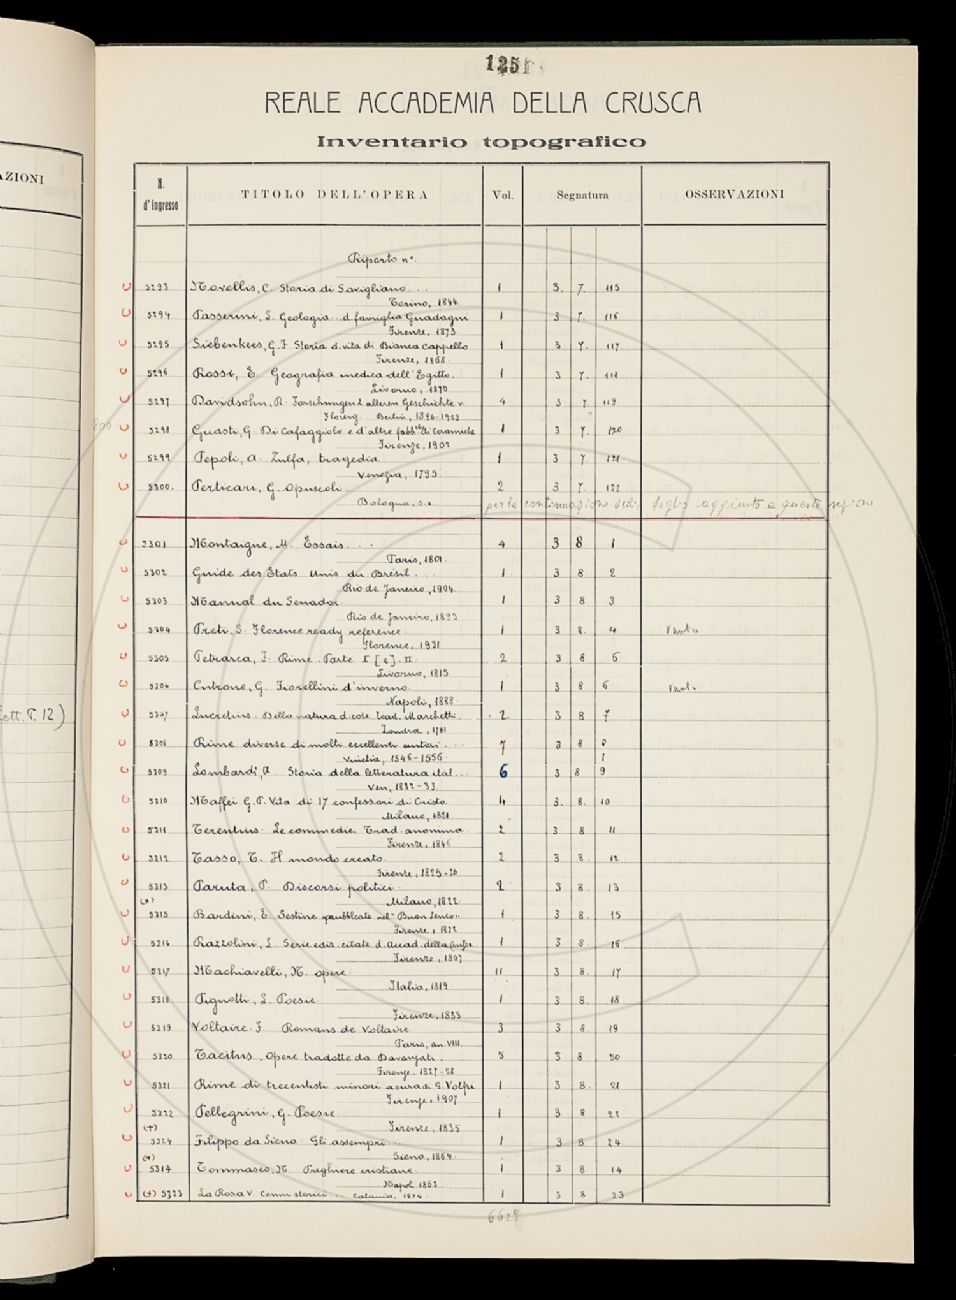 AZIONI
ett. T. 12)
1251
REALE ACCADEMIA DELLA CRUSCA
Inventario topografico
N. d'Ingresso TITOLO DELL'OPERA Vol. Segnatura OSSERVAZIONI
Riparto n°.
5293 Novellis, C. Storia di Savigliano... 1 3. 7. 115
Torino, 1844.
5294 Passerini, L. Geologia.. d. famiglia Guadagni 1 3 7. 116
Firenze, 1873
5295 Siebenkees, G. F. Storia d. vita di Bianca Cappello 1 3 7. 117
Firenze, 1868.
5296 Rossi, E. Geografia medica dell'Egitto. 1 3 7. 118
Livorno, 1870
5297 Davidsohn, R. Forschungen z. älteren Geschichte v. 4 3 7. 119
Florenz. Berlin, 1896-1908
5298 Guasti, G. Di Cafaggiolo e d'altre fabb. di ceramiche 1 3 7. 120
Firenze, 1902
5299 Pepoli, A. Zulfa, tragedia 1 3 7. 121
Venezia, 1795
5300. Perticari, G. Opuscoli 2 3 7. 122
Bologna, s.a. per la continuazione vedi foglio aggiunto a questa sezione
5301 Montaigne, M. Essais... 4 3 8 1
Paris, 1801.
5302 Guide des États Unis du Brésil... 1 3 8 2
Rio de Janeiro, 1904.
5303 Manual du Senador. 1 3 8 3
Rio de Janeiro, 1893
5304 Preti, S. Florence ready reference. 1 3 8. 4
Florence, 1931
5305 Petrarca, F. Rime. Parte I [e] II 2 3 8 5
Livorno, 1815
5306 Cutrone, G. Fiorellini d'inverno. 1 3 8 6
Napoli, 1888
5307 Lucretius. Della natura d. cose trad. Marchetti. 2 3 8 7
Londra, 1761
5308 Rime diverse di molti eccellenti autori... 7 3 8 8
Venetia, 1546-1556
5309 Lombardi, A. Storia della letteratura ital... 6 3 8 9
Ven, 1832-33
5310 Maffei G. P. Vita di 17 confessori di Cristo. 4 3. 8. 10
Milano, 1821
5311 Terentius. Le commedie. Trad. anonima. 2 3 8 11.
Firenze, 1846
5312 Tasso, T. Il mondo creato. 2 3 8. 12
Firenze, 1825-26
5313 Paruta, P. Discorsi politici. 2 3 8. 13
(+) Milano, 1822
5315 Bardini, E. Sestine pubblicate nel "Buon Senso" 1 3 8. 15
Firenze, 1872
5316 Razzolini, L. Serie ediz. citate d. Accad. della Crusca 1 3 8. 16
Firenze, 1867
5317 Machiavelli, N. opere 11 3 8. 17
Italia, 1819.
5318. Pignotti, L. Poesie. 1 3 8. 18
Firenze, 1833
5319 Voltaire. F. Romans de Voltaire 3 3 8 19
Paris, an. VIII.
5320 Tacitus, Opere tradotte da Davanzati. 5 3 8 20
Firenze. 1827-28
5321 Rime di trecentisti minori a cura di G. Volpi 1 3 8. 21
Firenze, 1907
5322 Pellegrini, G. Poesie. 1 3 8 22
(+) Firenze, 1835
5324 Filippo da Siena. Gli assempri... 1 3 8 24
(+) Siena, 1864.
5314 Tommaseo, N. Preghiere cristiane. 1 3 8 14
Napoli 1867
(+) 5323 La Rosa V. Cenni storici... Catania, 1874. 1 3 8 23
6629